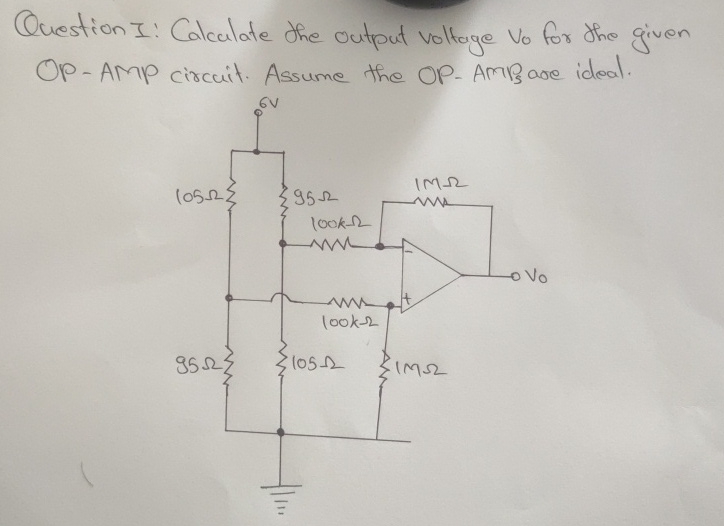 Question I: Calculate the output voltage Vo for the given
OP-AMP circuit. Assume the OP-AMPs are ideal.
6V
105Ω
95Ω
1MΩ
100kΩ
-
Vo
+
100kΩ
95Ω
105Ω
1MΩ